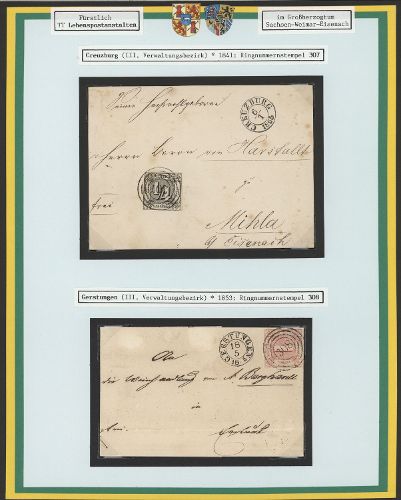 Fürstlich
TT Lebenspostanstalten
im Großherzogtum
Sachsen-Weimar-Eisenach
Creuzburg (III. Verwaltungsbezirk) * 1841: Ringnummernstempel 307
Seine Hochwohlgeboren
CREUZBURG
Herrn Baron von Harstall
frei
Mihla
Eisenach
Gerstungen (III. Verwaltungsbezirk) * 1853: Ringnummernstempel 308
GERSTUNGEN
16
5
An
die Weinhandlung von
in